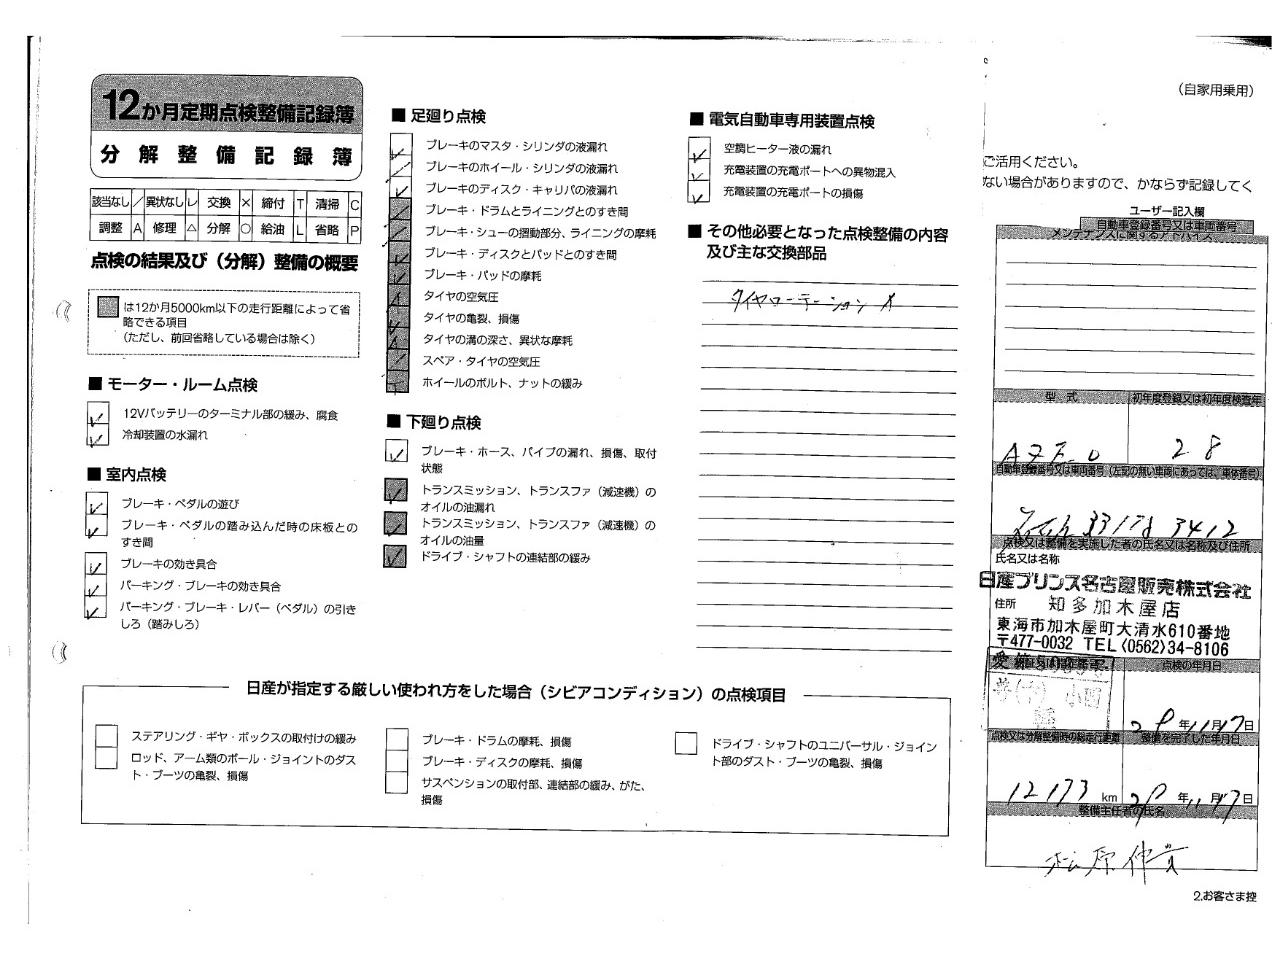 12か月定期点検整備記録簿
分解整備記録簿
該当なし ／ 異状なし レ 交換 × 締付 T 清掃 C
調整 A 修理 △ 分解 ○ 給油 L 省略 P
点検の結果及び（分解）整備の概要
は12か月5000km以下の走行距離によって省
略できる項目
（ただし、前回省略している場合は除く）
■ モーター・ルーム点検
12Vバッテリーのターミナル部の緩み、腐食
冷却装置の水漏れ
■ 室内点検
ブレーキ・ペダルの遊び
ブレーキ・ペダルの踏み込んだ時の床板との
すき間
ブレーキの効き具合
パーキング・ブレーキの効き具合
パーキング・ブレーキ・レバー（ペダル）の引き
しろ（踏みしろ）
■ 足廻り点検
ブレーキのマスタ・シリンダの液漏れ
ブレーキのホイール・シリンダの液漏れ
ブレーキのディスク・キャリパの液漏れ
ブレーキ・ドラムとライニングとのすき間
ブレーキ・シューの摺動部分、ライニングの摩耗
ブレーキ・ディスクとパッドとのすき間
ブレーキ・パッドの摩耗
タイヤの空気圧
タイヤの亀裂、損傷
タイヤの溝の深さ、異状な摩耗
スペア・タイヤの空気圧
ホイールのボルト、ナットの緩み
■ 下廻り点検
ブレーキ・ホース、パイプの漏れ、損傷、取付
状態
トランスミッション、トランスファ（減速機）の
オイルの油漏れ
トランスミッション、トランスファ（減速機）の
オイルの油量
ドライブ・シャフトの連結部の緩み
■ 電気自動車専用装置点検
空調ヒーター液の漏れ
充電装置の充電ポートへの異物混入
充電装置の充電ポートの損傷
■ その他必要となった点検整備の内容
及び主な交換部品
タイヤローテーション
日産が指定する厳しい使われ方をした場合（シビアコンディション）の点検項目
ステアリング・ギヤ・ボックスの取付けの緩み
ロッド、アーム類のボール・ジョイントのダス
ト・ブーツの亀裂、損傷
ブレーキ・ドラムの摩耗、損傷
ブレーキ・ディスクの摩耗、損傷
サスペンションの取付部、連結部の緩み、がた、
損傷
ドライブ・シャフトのユニバーサル・ジョイン
ト部のダスト・ブーツの亀裂、損傷
（自家用乗用）
ご活用ください。
ない場合がありますので、かならず記録してく
ユーザー記入欄
自動車登録番号又は車両番号
メンテナンスに関するアドバイス
型式 初年度登録又は初年度検査年
AZE-0 28
自動車登録番号又は車両番号（左記の無い車両にあっては、車体番号）
3412
点検又は整備を実施した者の氏名又は名称及び住所
氏名又は名称
日産プリンス名古屋販売株式会社
住所 知多加木屋店
東海市加木屋町大清水610番地
〒477-0032 TEL〈0562〉34-8106
点検の年月日
29年11月17日
点検又は分解整備時の総走行距離 整備を完了した年月日
12173 km 29年11月17日
整備主任者の氏名
松原伸
2.お客さま控